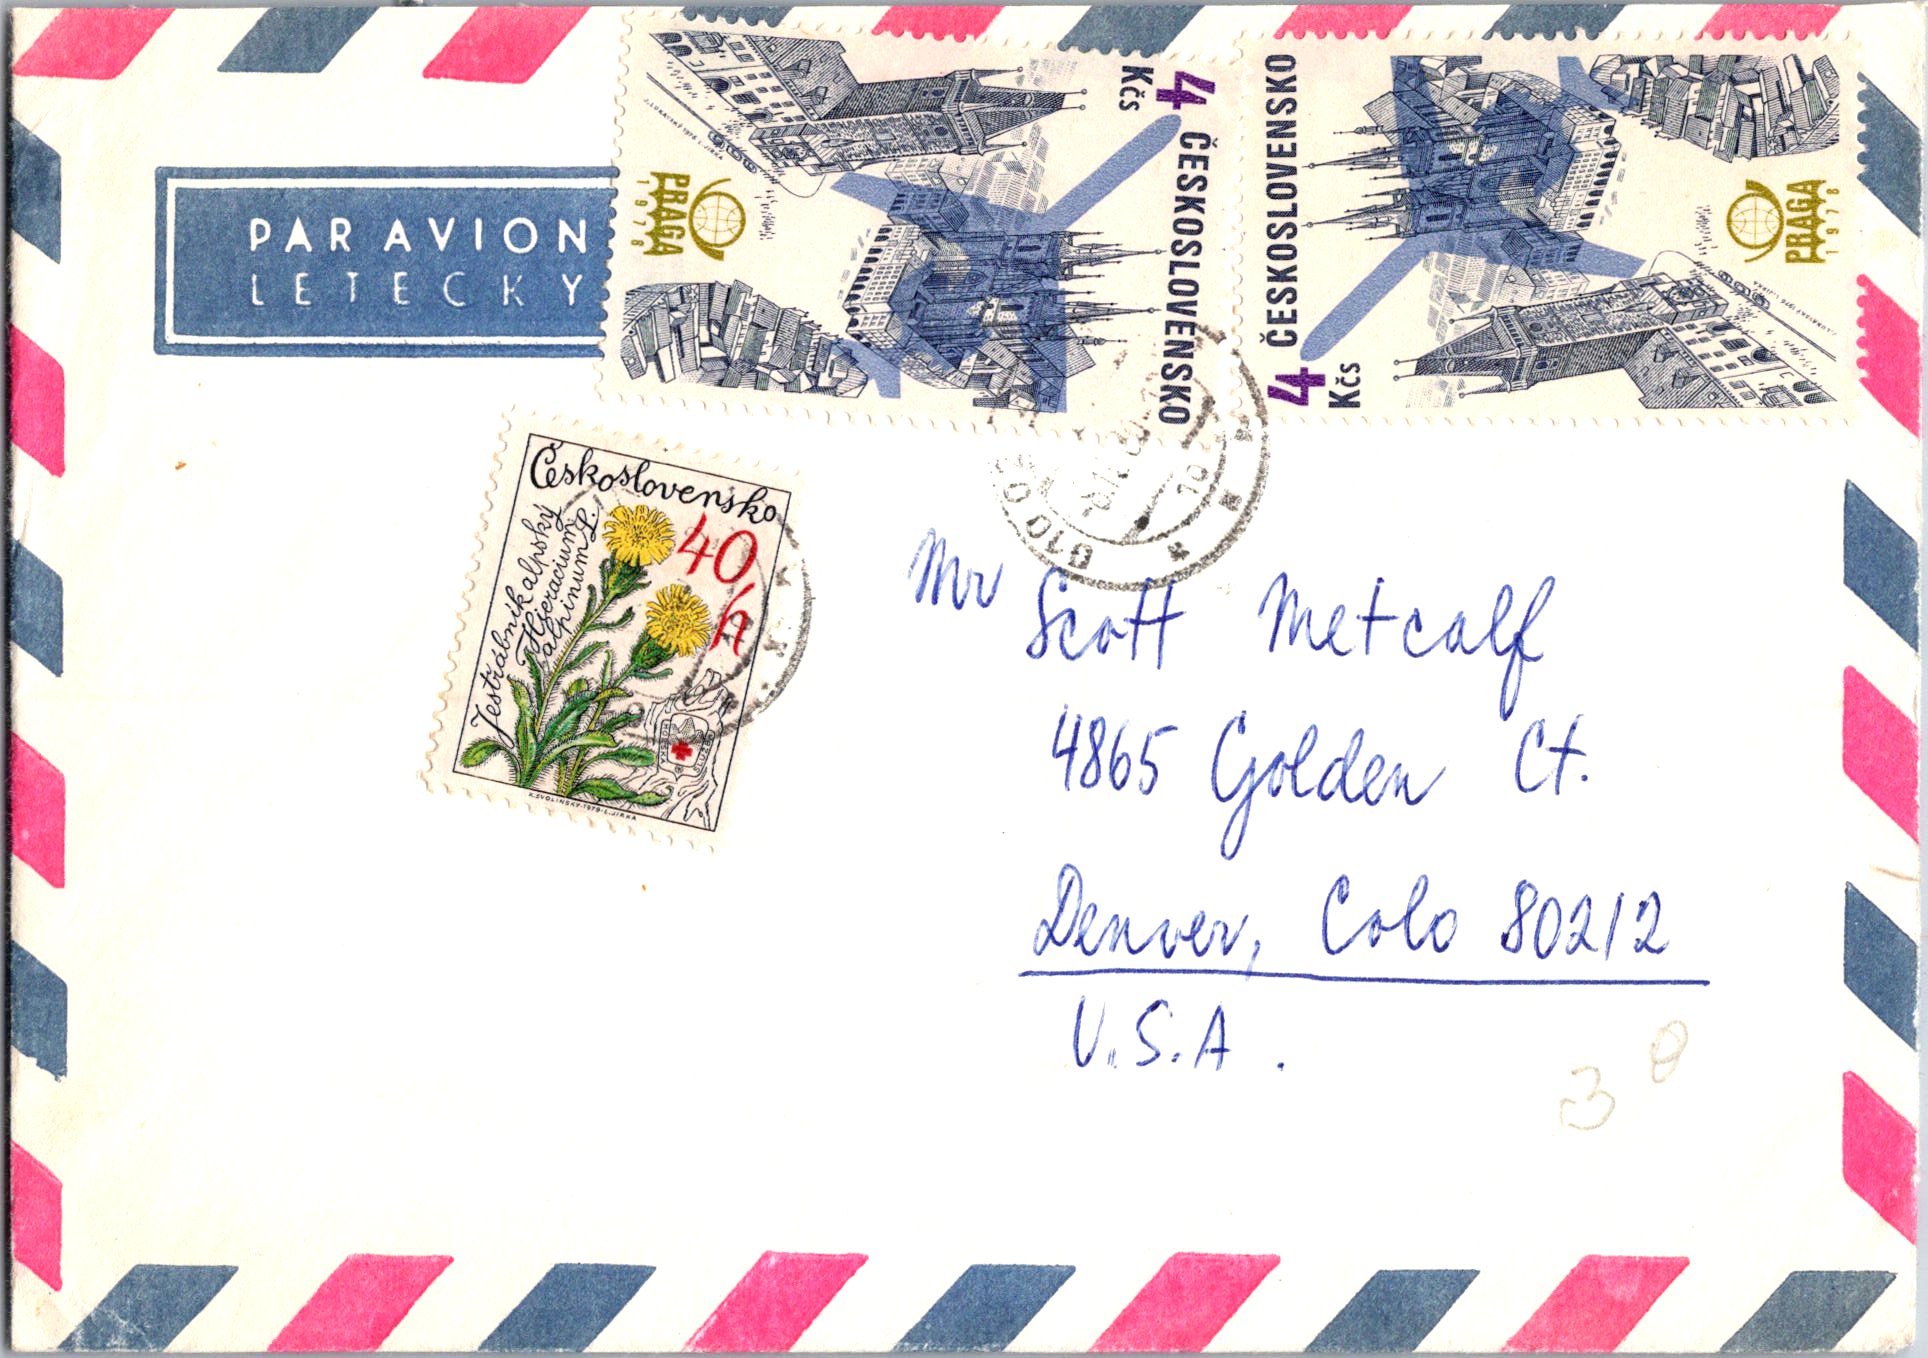 PAR AVION
LETECKY
4
Kčs
ČESKOSLOVENSKO
PRAGA
1978
ČESKOSLOVENSKO
4
Kčs
PRAGA
1978
Československo
40h
Jestřábník alpský
Hieracium
alpinum L.
K.SVOLINSKÝ-1979-L.JIRKA
Mr Scott Metcalf
4865 Golden Ct.
Denver, Colo 80212
U.S.A.
3 0